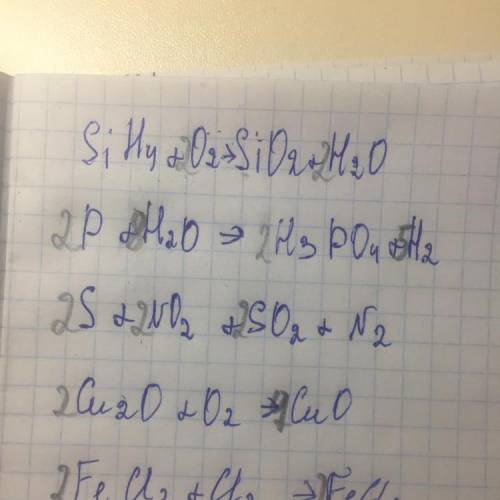 SiH4 + 2O2 → SiO2 + 2H2O
2P + 8H2O → 2H3PO4 + 5H2
2S + 2NO2 + 2SO2 + N2
2Cu2O + O2 → 4CuO
2FeCl2 + Cl2 → 2FeCl